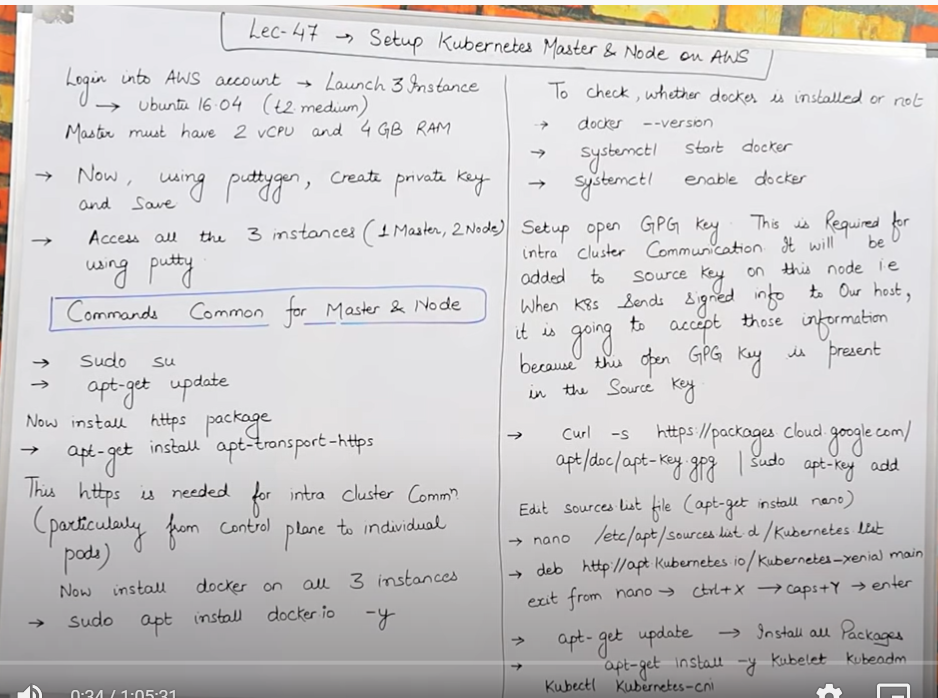 Lec-47 → Setup Kubernetes Master & Node on AWS
Login into AWS account → Launch 3 Instance
→ Ubuntu 16.04 (t2.medium)
Master must have 2 vCPU and 4 GB RAM
→ Now, using puttygen, Create private key
and Save
→ Access all the 3 instances (1 Master, 2 Node)
using putty
Commands Common for Master & Node
→ Sudo su
→ apt-get update
Now install https package
→ apt-get install apt-transport-https
This https is needed for intra cluster Commⁿ
(particularly from control plane to individual
pods)
Now install docker on all 3 instances
→ sudo apt install docker.io -y
To check, whether docker is installed or not
→ docker --version
→ systemctl start docker
→ systemctl enable docker
Setup open GPG Key. This is Required for
intra cluster Communication. It will be
added to source Key on this node i.e
When K8s Sends signed info to Our host,
it is going to accept those information
because this open GPG Key is present
in the Source Key
→ Curl -s https://packages.cloud.google.com/
apt/doc/apt-key.gpg | sudo apt-key add
Edit sources list file (apt-get install nano)
→ nano /etc/apt/sources.list.d/Kubernetes.list
→ deb http://apt.Kubernetes.io/Kubernetes-xenial main
exit from nano → ctrl+X → caps+Y → enter
→ apt-get update → Install all Packages
→ apt-get install -y Kubelet Kubeadm
Kubectl Kubernetes-cni
0:34 / 1:05:31